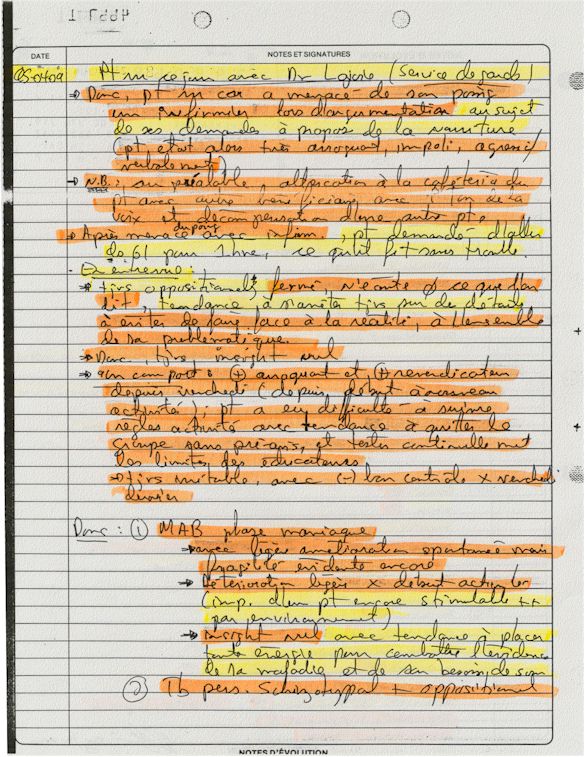 DATE
NOTES ET SIGNATURES
05-04-09 Pt vu ce jour avec Dr Lajoie (Service de garde)
→ Donc, pt hier a menacé de son poing
un infirmier lors d'argumentation au sujet
de ses demandes à propos de la nourriture
(pt, etait alors très arrogant, impoli, agressif
verbalement)
→ N.B.: au préalable, altercation à la cafétéria du
pt avec autre bénéficiaire avec de la
voix et décompensation d'une autre pte.
→ Après menace du poing avec infirm., pt demandé d'aller
de 61 pour 1 hre, ce qu'il fit sans trouble.
- En entrevue:
→ tjrs oppositionnel, fermé, n'écoute ∅ ce que l'on
lit, tendance à s'arrêter tjrs sur de détails
à éviter de faire face à la réalité, à l'ensemble
de sa problématique.
→ Donc, tjrs, insight nul
→ qn comport: ⊕ arrogant et ⊕ revendicateur
depuis vendredi (depuis début à nouveau
activité); pt a eu difficulté à suivre
règles activité avec tendance à quitter le
groupe sans préavis, et tester continuellement
les limites des éducateurs
→ tjrs irritable, avec (-) bon contrôle x vendredi
dernier
Donc: ① MAB phase maniaque
→ avec légère amélioration spontanée mais
fragilité évidente encore
→ Détérioration légère x début activités
(imp. d'un pt encore stimulable ++
par environnement)
→ insight nul avec tendance à placer
toute énergie pour combattre l'évidence
de sa maladie et de son besoin de soin
② Tb pers. Schizotypal + oppositionnel
NOTES D'ÉVOLUTION